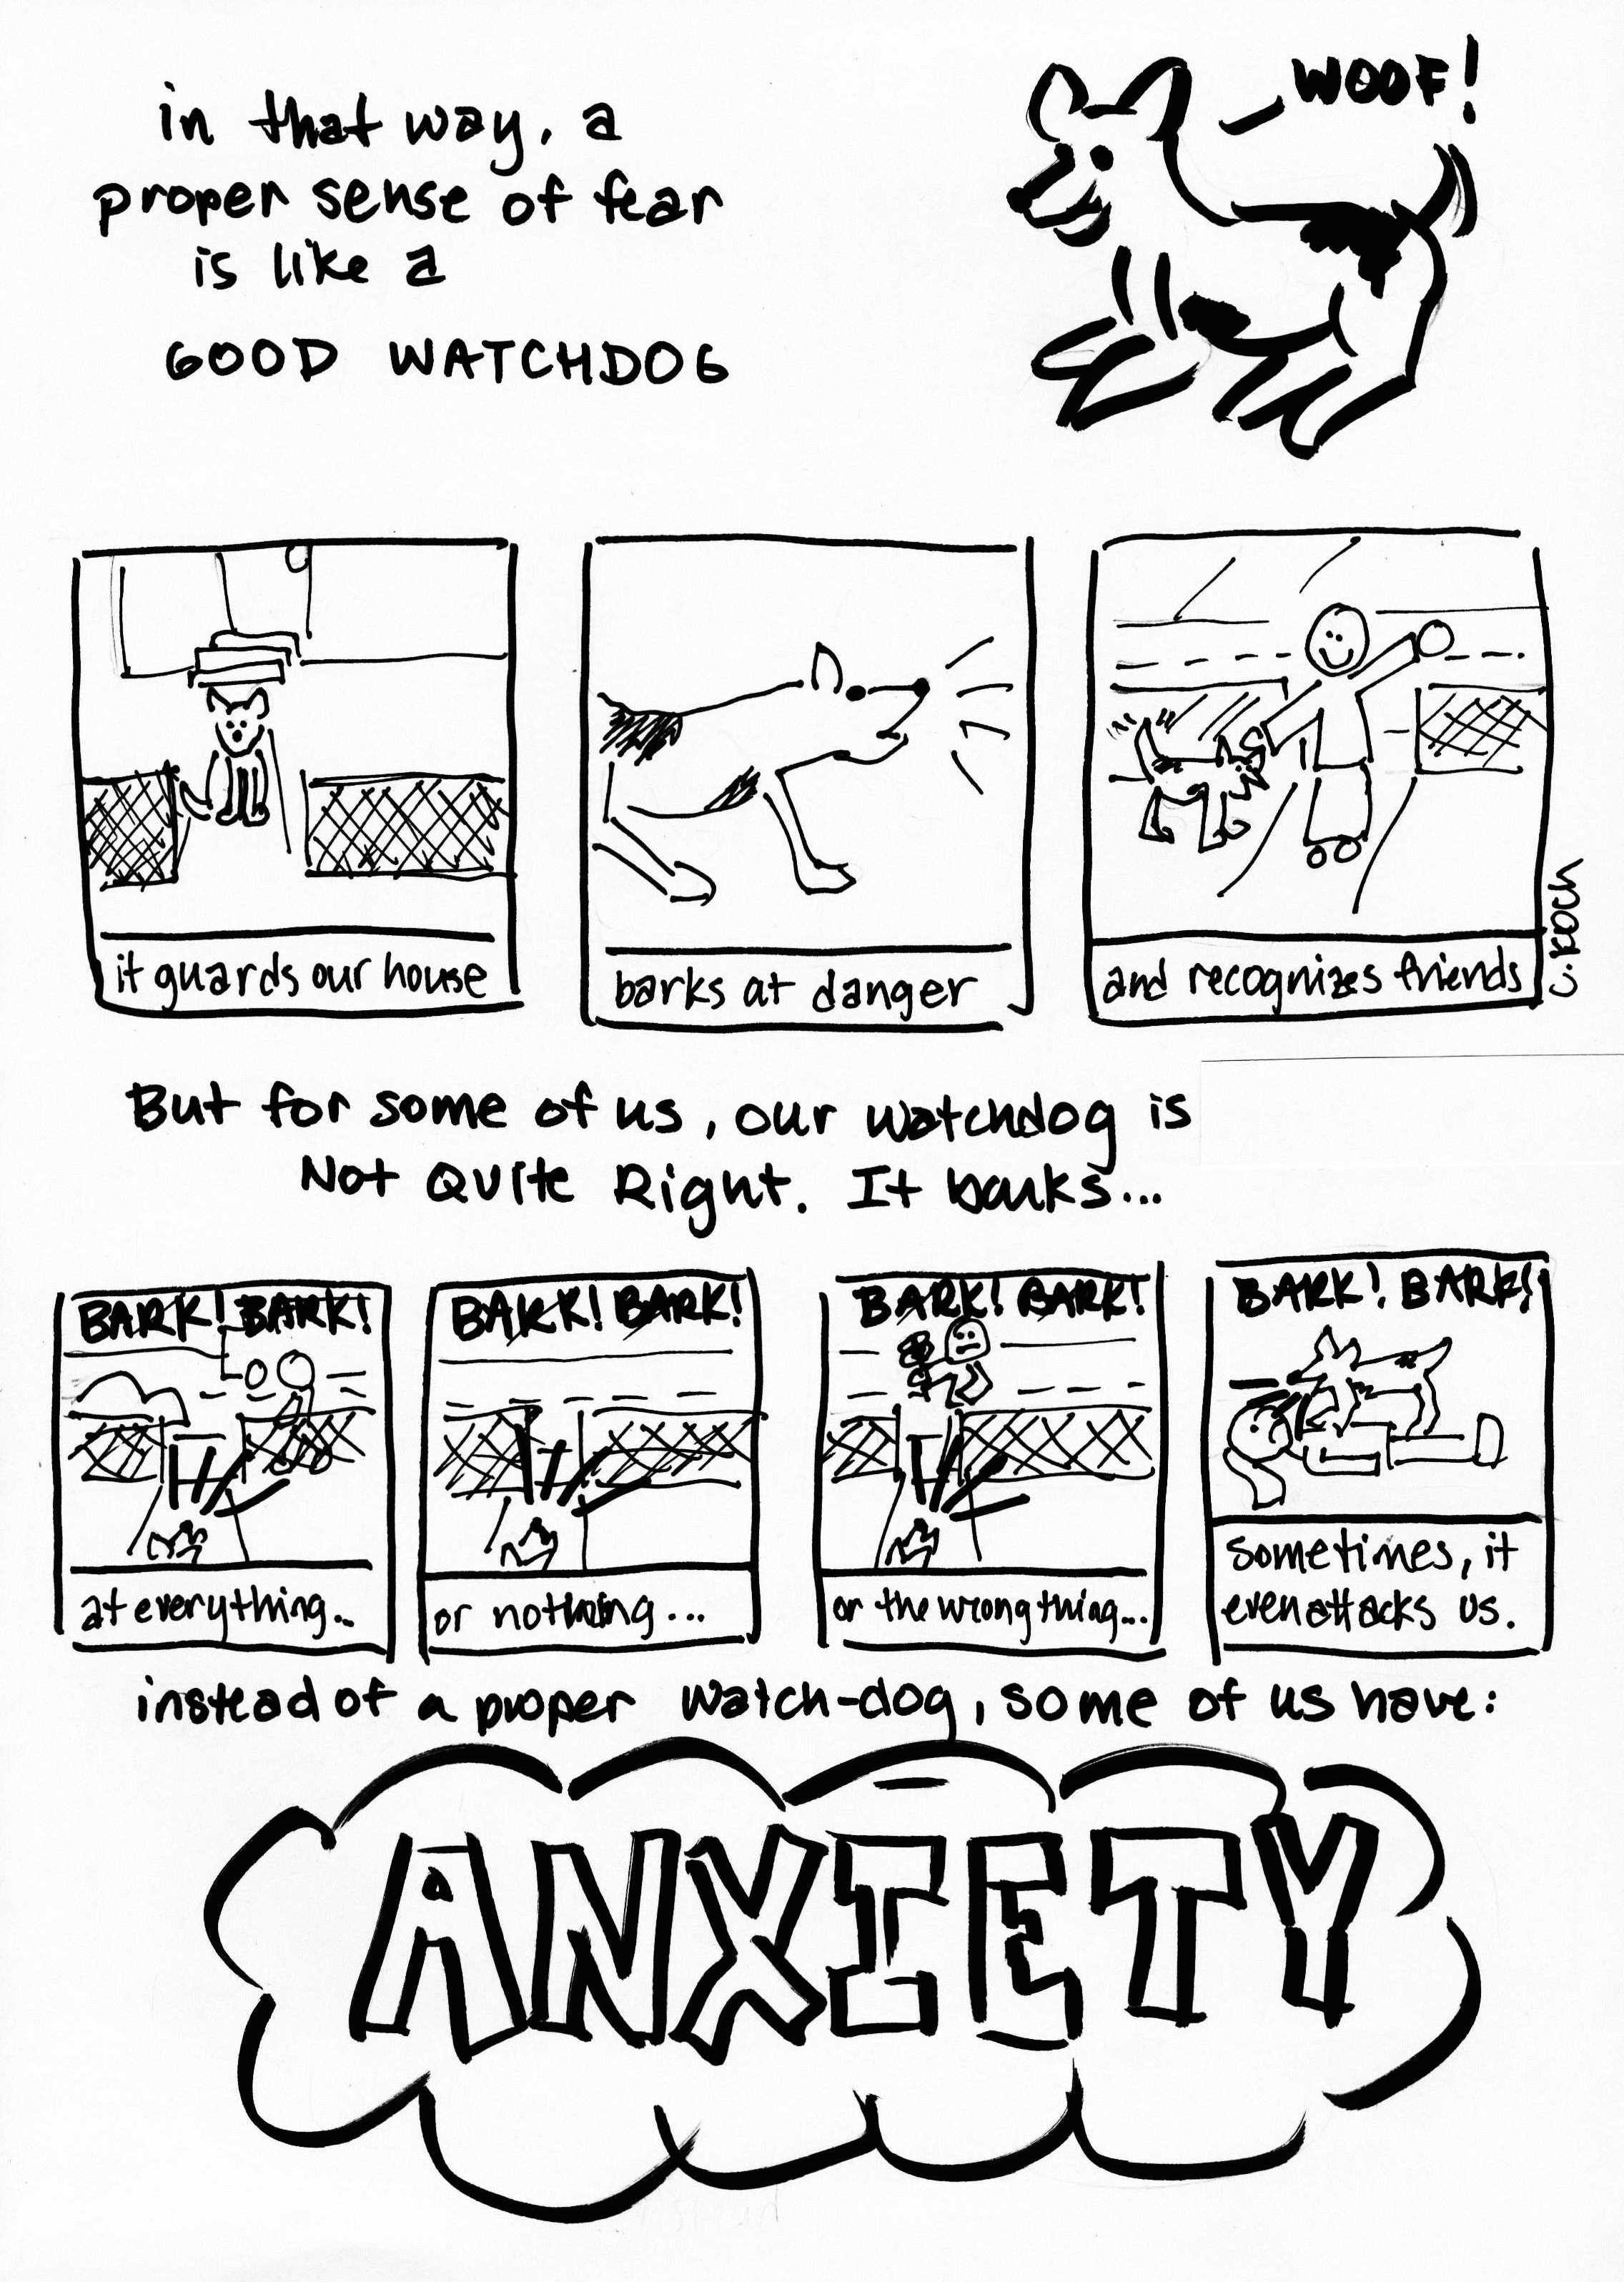 in that way, a
proper sense of fear
is like a
GOOD WATCHDOG
WOOF!
it guards our house
barks at danger
and recognizes friends
C. KOCH
But for some of us, our watchdog is
Not Quite Right. It barks...
BARK! BARK!
at everything...
BARK! BARK!
or nothing...
BARK! BARK!
or the wrong thing...
BARK! BARK!
sometimes, it
even attacks us.
instead of a proper watch-dog, some of us have:
ANXIETY